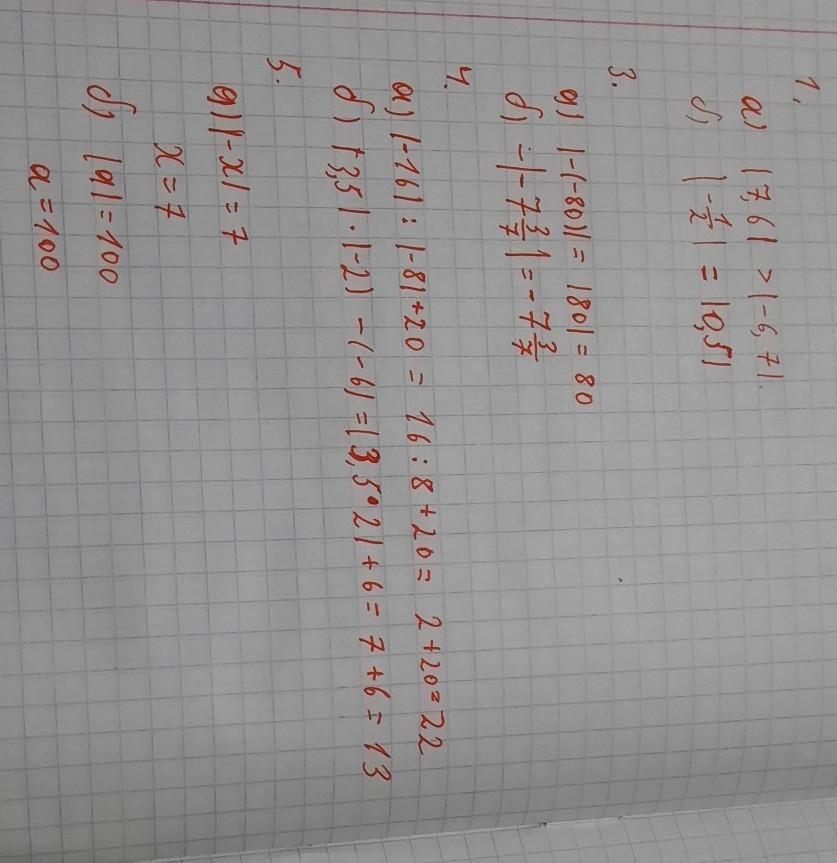 1.
а) |7,6| > |-6,7|
б) |-1/2| = |0,5|
3.
а) |-(-80)| = |80| = 80
б) -|-7 3/7| = -7 3/7
4.
а) |-16| : |-8| + 20 = 16 : 8 + 20 = 2 + 20 = 22
б) |3,5| · |-2| - (-6) = |3,5 · 2| + 6 = 7 + 6 = 13
5.
а) |-x| = 7
x = 7
б) |a| = 100
a = 100